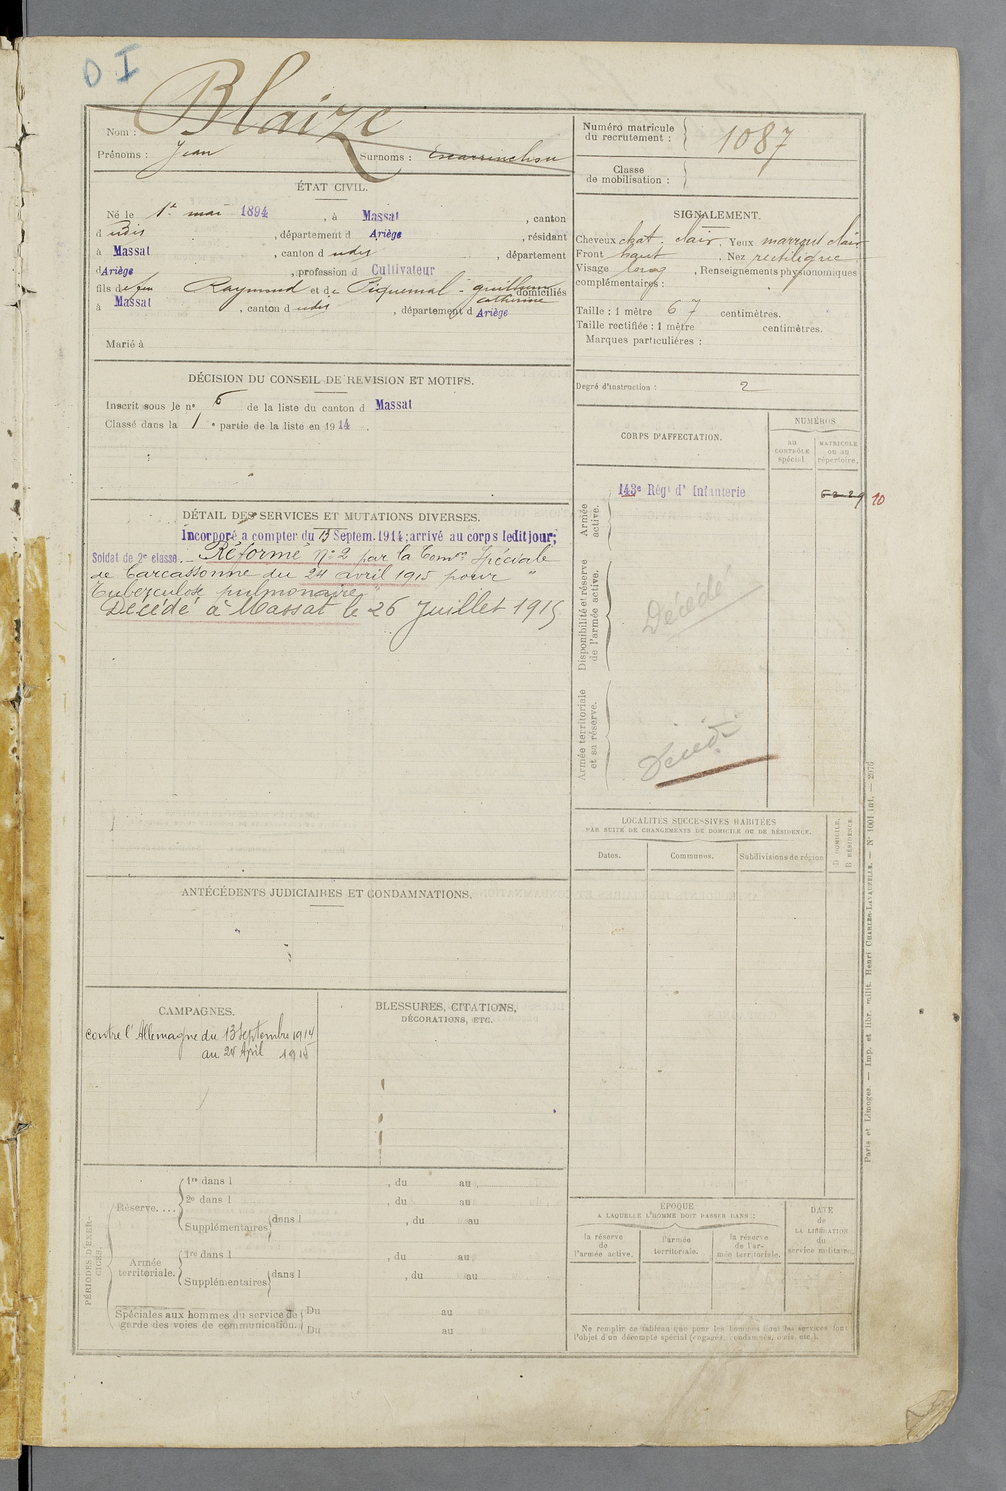 D I
Nom : Blaize
Prénoms : Jean Surnoms :
Numéro matricule du recrutement : 1087
Classe de mobilisation :
ÉTAT CIVIL.
Né le 1er mai 1894, à Massat, canton
d udis, département d Ariège, résidant
à Massat, canton d udis, département
d Ariège, profession d Cultivateur
fils de feu Raymond et de Piquemal - guilhem Catherine domiciliés
à Massat, canton d udis, département d Ariège
Marié à
DÉCISION DU CONSEIL DE REVISION ET MOTIFS.
Inscrit sous le n° 6 de la liste du canton d Massat
Classé dans la 1e partie de la liste en 1914.
DÉTAIL DES SERVICES ET MUTATIONS DIVERSES.
Incorporé a compter du 13 Septem. 1914; arrivé au corps ledit jour;
Soldat de 2e classe. Réformé n° 2 par la Comon Spéciale
de Carcassonne du 24 avril 1915 pour "
Tuberculose pulmonaire "
Décédé à Massat le 26 Juillet 1915
ANTÉCÉDENTS JUDICIAIRES ET CONDAMNATIONS.
CAMPAGNES.
contre l'Allemagne du 13 septembre 1914
au 24 April 1915
BLESSURES, CITATIONS,
DÉCORATIONS, ETC.
PÉRIODES D'EXERCICES.
Réserve....
1re dans l , du au
2e dans l , du au
Supplémentaires dans l , du au
Armée territoriale.
1re dans l , du au
Supplémentaires dans l , du au
Spéciales aux hommes du service de
garde des voies de communication.
Du au
Du au
SIGNALEMENT.
Cheveux chat. clair. Yeux marront clair
Front haut. Nez rectiligne.
Visage long, Renseignements physionomiques
complémentaires :
Taille : 1 mètre 67 centimètres.
Taille rectifiée : 1 mètre centimètres.
Marques particulières :
Degré d'instruction : 2
CORPS D'AFFECTATION.
NUMÉROS
au CONTRÔLE spécial.
MATRICULE ou au répertoire.
Armée active.
143e Régt d' Infanterie
10
Disponibilité et réserve de l'armée active.
Décédé
Armée territoriale et sa réserve.
Décédé
LOCALITÉS SUCCESSIVES HABITÉES
PAR SUITE DE CHANGEMENTS DE DOMICILE OU DE RÉSIDENCE.
Dates. Communes. Subdivisions de région
D DOMICILE.
R RÉSIDENCE.
ÉPOQUE
A LAQUELLE L'HOMME DOIT PASSER DANS :
la réserve de l'armée active.
l'armée territoriale.
la réserve de l'armée territoriale.
DATE de LA LIBÉRATION du service militaire.
Ne remplir ce tableau que pour les hommes dont les services font
l'objet d'un décompte spécial (engagés, condamnés, omis, etc.).
Paris et Limoges. — Imp. et libr. milit. Henri CHARLES-LAVAUZELLE. — N° 1001 int. — 2976